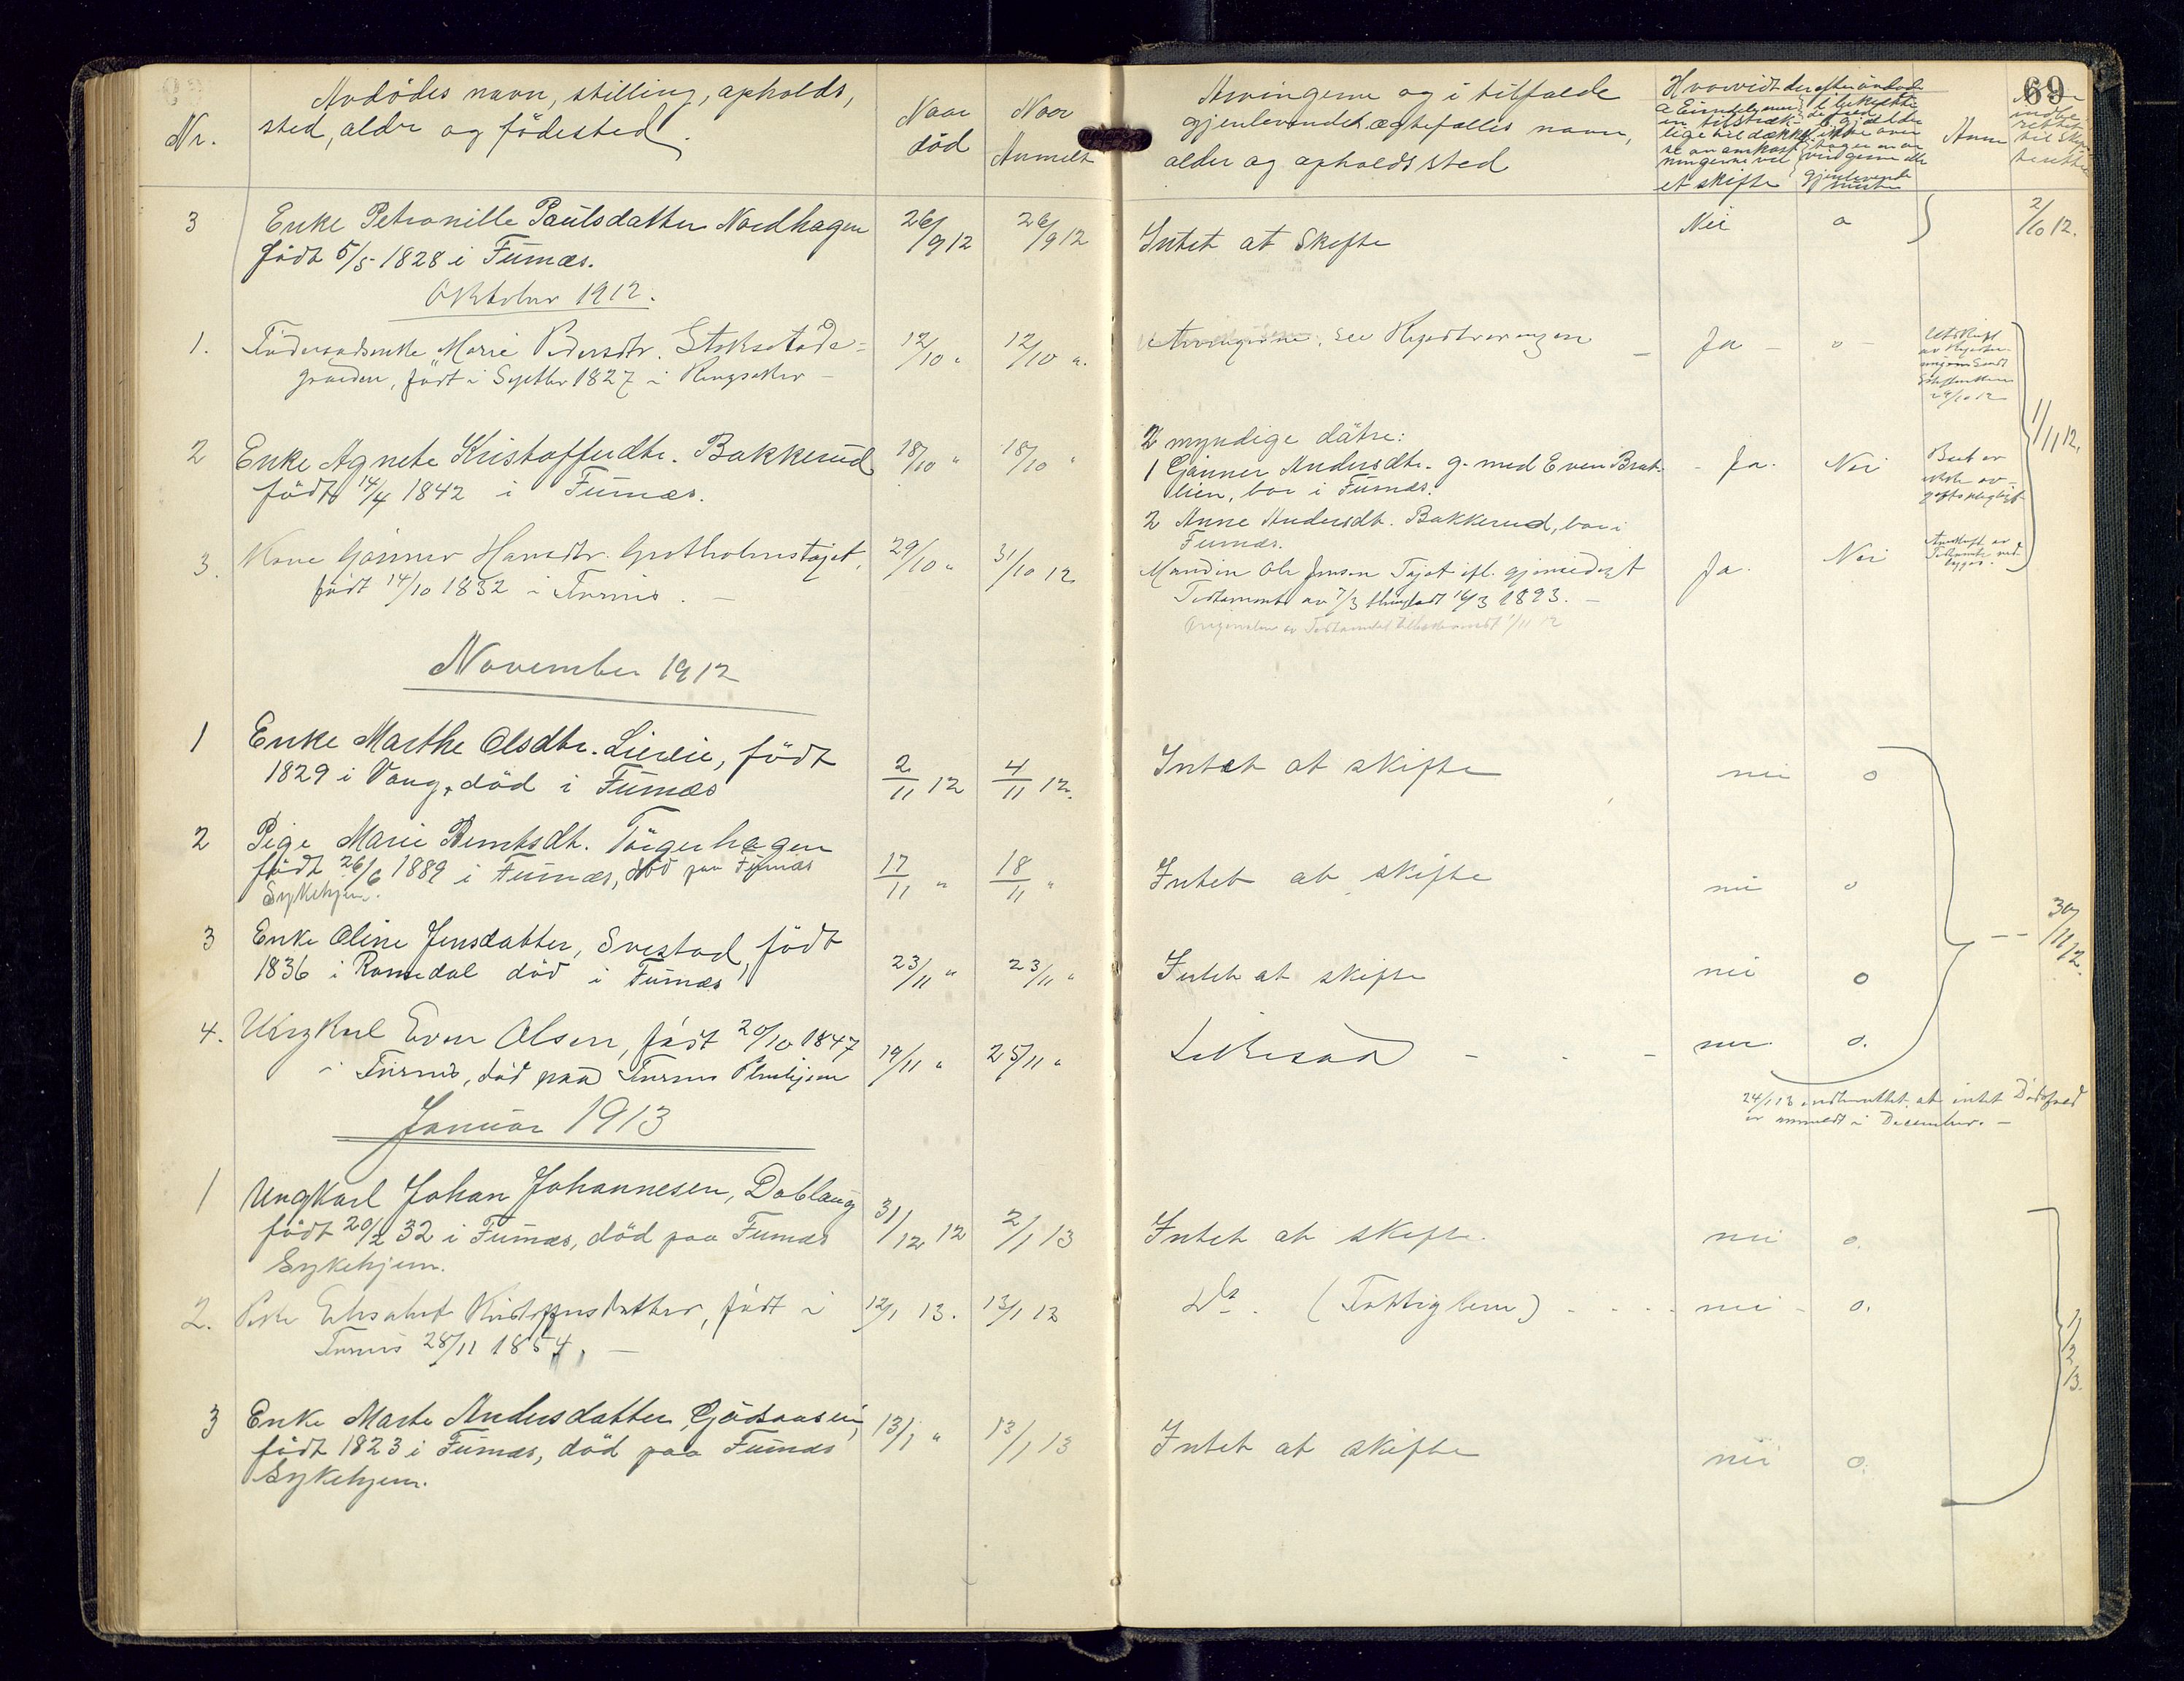 69
Nr.
Avdødes navn, stilling, opholds,
sted, alder og födested.
Naar
död
Naar
Anmeldt
Arvingerne og i tilfælde
gjenlevende ægtefælles navn,
alder og opholdssted
Hvorvidt der efter
et skifte
Anm
3
Enke Petronille Paulsdatter Nordhagen
födt 5/5 1828 i Furnæs.
26/9 12
26/9 12
Intet at Skifte
Nei
o
2/10 12.
Oktober 1912.
1.
Föderaadsenke Marie Pedersdtr. Stoksstade-
graeden, födt i Septbr 1827 i Ringsaker -
12/10 "
12/10 "
Arvingerne: see Registreringen
Ja
o
Utskrift
av Registre-
ringen sendt
29/10 12
2
Enke Agnete Kristofferdtr. Bakkerud
födt 14/4 1842 i Furnæs.
18/10 "
18/10 "
2 myndige døtre:
1 Gunner Andersdtr. g. med Even Brat-
lien, bor i Furnæs.
2 Anne Andersdtr. Bakkerud, bor i
Furnæs.
Ja.
Nei
Boet er
ikke av-
giftspligtigt
1/11 12.
3.
Kone Gunner Hansdtr. Grotholmstajet,
födt 14/10 1832 i Furnes. -
29/10 "
31/10 12
Manden Ole Jensen Tajet ifl. gjensidigt
Testamente av 7/3 thinglæst 16/3 1893. -
Originalen av Testamentet tilbakesendt 1/11 12
Ja.
Nei
Avskrift av
Testamente ved-
lægges.
November 1912
1
Enke Marthe Olsdtr. Lierlie, födt
1829 i Vang, död i Furnæs
2/11 12
4/11 12.
Intet at skifte
nei
o
2
Pige Marie Berntsdtr. Törgerhagen
födt 26/6 1889 i Furnæs, död paa Furnæs
Sykehjem.
17/11 "
18/11 "
Intet at skifte
nei
o
3
Enke Oline Jensdatter, Svestad, födt
1836 i Romedal död i Furnæs
23/11 "
23/11 "
Intet at skifte
nei
o
30/11 12.
4.
Ungkarl Even Olsen, födt 20/10 1847
i Furnes, död paa Furnes Pleiehjem
19/11 "
25/11 "
Likesaa
nei
o.
24/1 13 indberettet at intet Dödsfald
er anmeldt i December. -
Januar 1913
1
Ungkarl Johan Johannesen, Dablaug
födt 20/2 32 i Furnæs, död paa Furnæs
Sykehjem.
31/12 12
2/1 13
Intet at skifte.
nei
o.
2.
Pike Elisabet Kristoffersdatter, födt i
Furnes 28/11 1854. -
12/1 13.
13/1 13
Do. (Fattiglem)
nei
o.
1/2 13.
3
Enke Marte Andersdatter Gjösaasen,
födt 1823 i Furnæs, död paa Furnæs
Sykehjem.
13/1 "
13/1 13
Intet at skifte
nei
o.